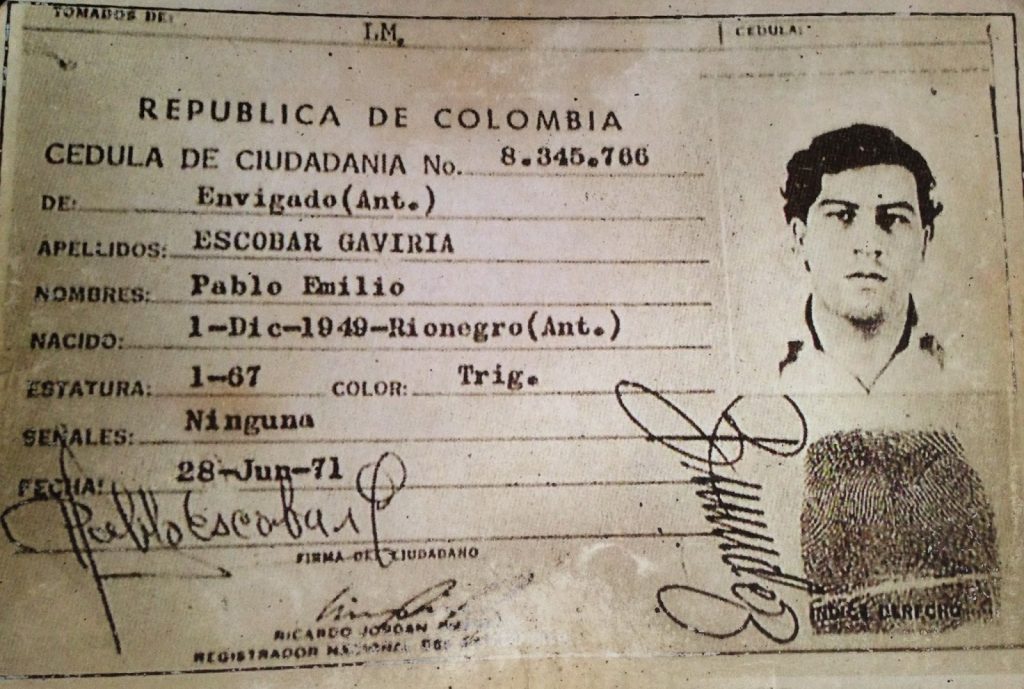 TOMADOS DE:
I.M.
CEDULA:
REPUBLICA DE COLOMBIA
CEDULA DE CIUDADANIA No. 8.345.766
DE: Envigado(Ant.)
APELLIDOS: ESCOBAR GAVIRIA
NOMBRES: Pablo Emilio
NACIDO: 1-Dic-1949-Rionegro(Ant.)
ESTATURA: 1-67 COLOR: Trig.
SEÑALES: Ninguna
FECHA: 28-Jun-71
Pablo Escobar G
FIRMA DEL CIUDADANO
INDICE DERECHO
RICARDO JORDAN
REGISTRADOR NACIONAL DEL